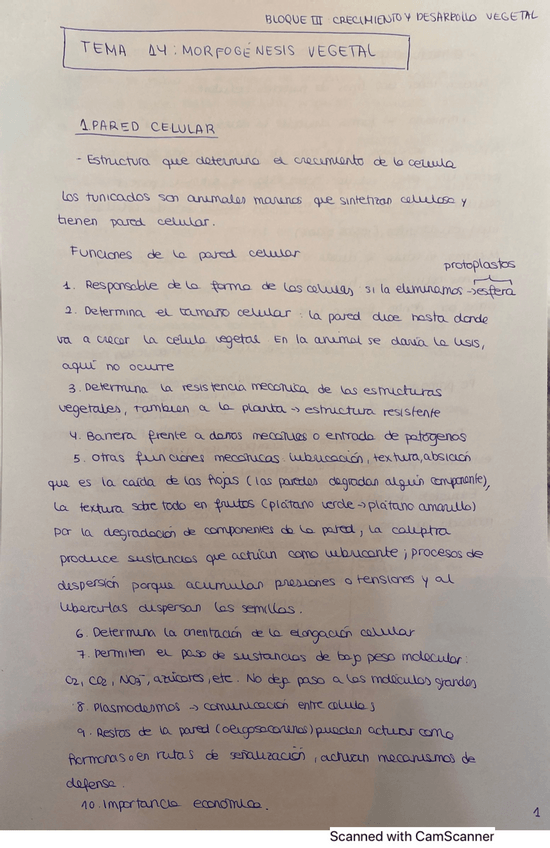 BLOQUE III CRECIMIENTO Y DESARROLLO VEGETAL
TEMA 14: MORFOGÉNESIS VEGETAL
1. PARED CELULAR
- Estructura que determina el crecimiento de la celula
Los tunicados son animales marinos que sintetizan celulosa y
tienen pared celular.
Funciones de la pared celular
protoplastos
1. Responsable de la forma de las celulas, si la eliminamos → esfera
2. Determina el tamaño celular: la pared dice hasta donde
va a crecer la celula vegetal. En la animal se daria la lisis,
aquí no ocurre
3. Determina la resistencia mecanica de las estructuras
vegetales, tambien a la planta → estructura resistente
4. Barrera frente a daños mecanicos o entrada de patogenos
5. Otras funciones mecanicas: lubricación, textura, absición
que es la caída de las hojas (las paredes degradan algún componente),
la textura sobre todo en frutos (plátano verde → plátano amarillo)
por la degradación de componentes de la pared, la caliptra
produce sustancias que actúan como lubricante; procesos de
dispersión porque acumulan presiones o tensiones y al
liberarlas dispersan las semillas.
6. Determina la orientación de la elongación celular
7. Permiten el paso de sustancias de bajo peso molecular:
O2, CO2, NO3⁻, azúcares, etc. No deja paso a las moléculas grandes
8. Plasmodesmos → comunicación entre celulas
9. Restos de la pared (oligosacarinas) pueden actuar como
hormonas o en rutas de señalización, activan mecanismos de
defensa.
10. Importancia económica.
1
Scanned with CamScanner